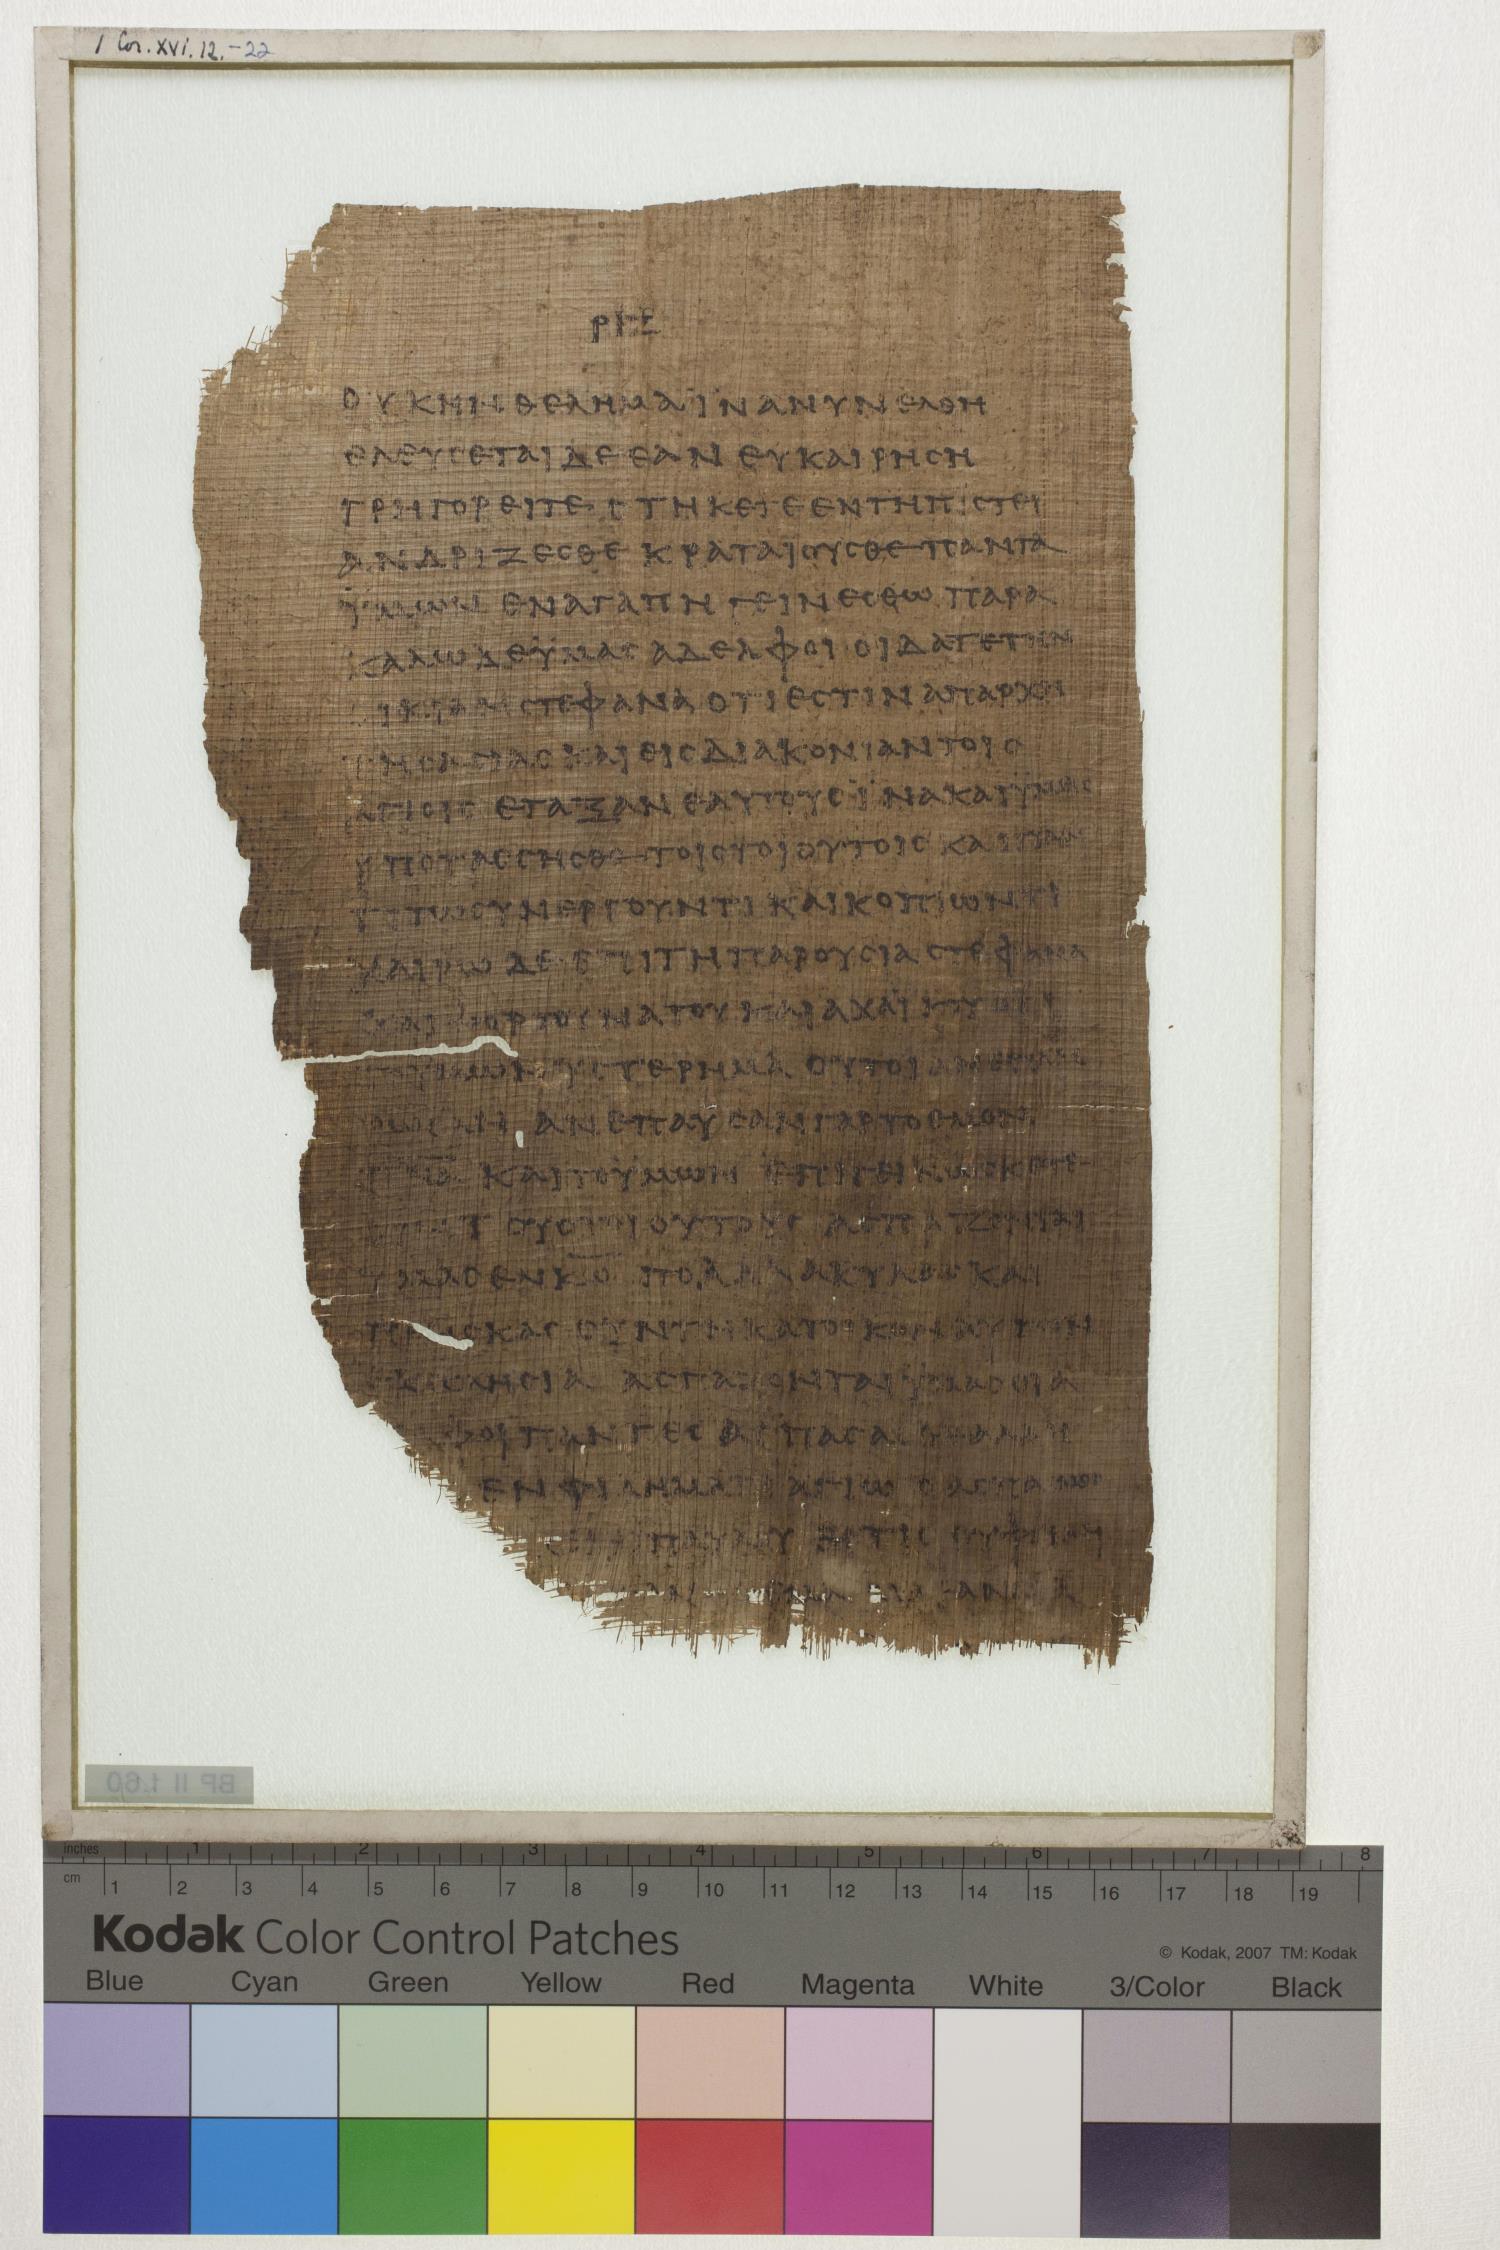 1 Cor. XVI. 12.-22
ΡΙΞ
ΟΥΚΗΝ ΘΕΛΗΜΑ ΪΝΑ ΝΥΝ ΕΛΘΗ
ΕΛΕΥΣΕΤΑΙ ΔΕ ΕΑΝ ΕΥΚΑΙΡΗΣΗ
ΓΡΗΓΟΡΕΙΤΕ ΣΤΗΚΕΤΕ ΕΝ ΤΗ ΠΙΣΤΕΙ
ΑΝΔΡΙΖΕΣΘΕ ΚΡΑΤΑΙΟΥΣΘΕ ΠΑΝΤΑ
ΫΜΩΝ ΕΝ ΑΓΑΠΗ ΓΕΙΝΕΣΘΩ ΠΑΡΑ
ΚΑΛΩ ΔΕ ΫΜΑΣ ΑΔΕΛΦΟΙ ΟΙΔΑΤΕ ΤΗΝ
ΙΚΙΑΝ ΣΤΕΦΑΝΑ ΟΤΙ ΕΣΤΙΝ ΑΠΑΡΧΗ
ΚΑΙ ΕΙΣ ΔΙΑΚΟΝΙΑΝ ΤΟΙΣ
ΑΓΙΟΙΣ ΕΤΑΞΑΝ ΕΑΥΤΟΥΣ ΪΝΑ ΚΑΙ ΫΜΕΙΣ
ΤΟΙΣ ΤΟΙΟΥΤΟΙΣ ΚΑΙ
ΣΥΝΕΡΓΟΥΝΤΙ ΚΑΙ ΚΟΠΙΩΝΤΙ
ΧΑΙΡΩ ΔΕ ΕΠΙ ΤΗ ΠΑΡΟΥΣΙΑ ΣΤΕΦΑΝΑ
ΚΑΙ ΑΧΑΪΚΟΥ
ΫΣΤΕΡΗΜΑ ΟΥΤΟΙ
ΑΝΕΠΑΥΣΑΝ ΓΑΡ ΤΟ ΕΜΟΝ
ΚΑΙ ΤΟ ΫΜΩΝ
ΤΟΥΣ ΤΟΙΟΥΤΟΥΣ ΑΣΠΑΖΟΝΤΑΙ
ΫΜΑΣ ΕΝ ΚΩ ΑΚΥΛΑΣ ΚΑΙ
ΣΥΝ ΤΗ ΚΑΤ ΟΙΚΟΝ ΑΥΤΩΝ
ΚΛΗΣΙΑ ΑΣΠΑΖΟΝΤΑΙ ΫΜΑΣ ΟΙ Α
ΦΟΙ ΠΑΝΤΕΣ
ΕΝ ΦΙΛΗΜΑΤΙ ΑΓΙΩ Ο ΑΣΠΑΣΜΟΣ
ΠΑΥΛΟΥ ΕΙ ΤΙΣ ΟΥ ΦΙΛΕΙ
BP II f.60
inches 1 2 3 4 5 6 7 8
cm 1 2 3 4 5 6 7 8 9 10 11 12 13 14 15 16 17 18 19
Kodak Color Control Patches
© Kodak, 2007 TM: Kodak
Blue Cyan Green Yellow Red Magenta White 3/Color Black